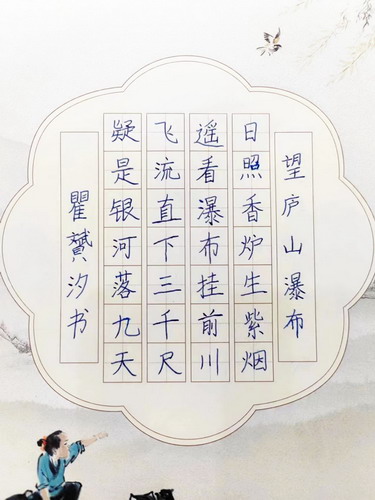 望庐山瀑布
日照香炉生紫烟
遥看瀑布挂前川
飞流直下三千尺
疑是银河落九天
瞿赟汐书